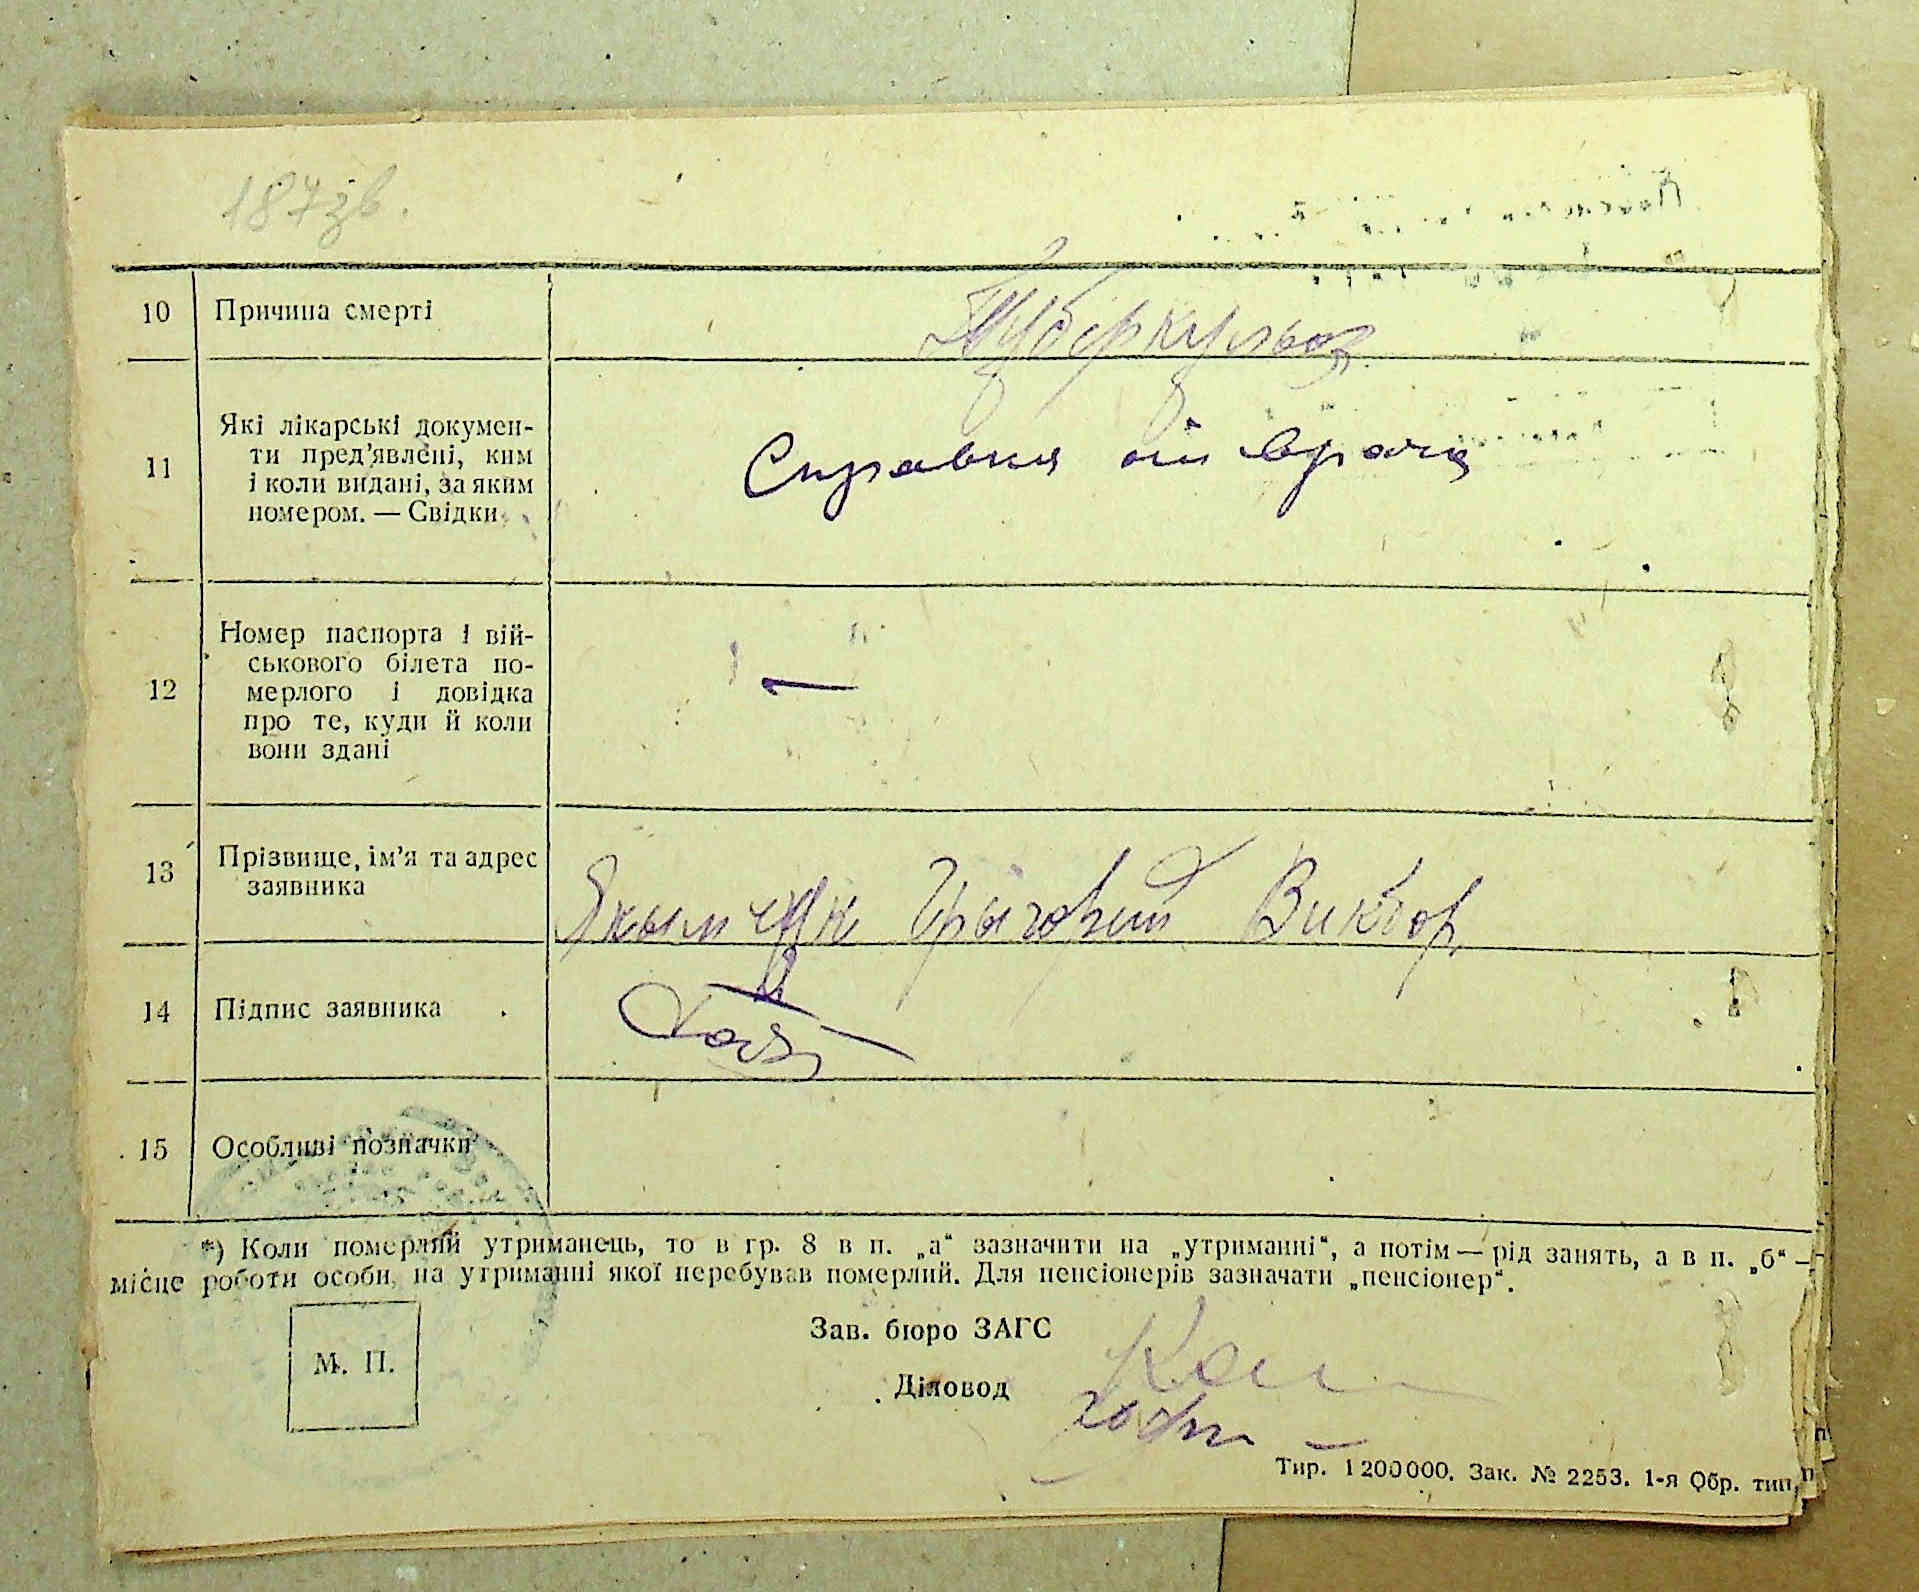 187зв.
10 Причина смерті Туберкульоз
11 Які лікарські докумен-
ти пред'явлені, ким
і коли видані, за яким
номером. — Свідки
Справка от врача
12 Номер паспорта і вій-
ськового білета по-
мерлого і довідка
про те, куди й коли
вони здані
—
13 Прізвище, ім'я та адрес
заявника
Якымчук Грыгорий Виктор
14 Підпис заявника
15 Особливі позначки
*) Коли померлий утриманець, то в гр. 8 в п. „а“ зазначити на „утриманні“, а потім — рід занять, а в п. „б“ —
місце роботи особи, на утриманні якої перебував померлий. Для пенсіонерів зазначати „пенсіонер“.
Зав. бюро ЗАГС
М. П.
Діловод
Тир. 1200000. Зак. № 2253. 1-я Обр. тип.